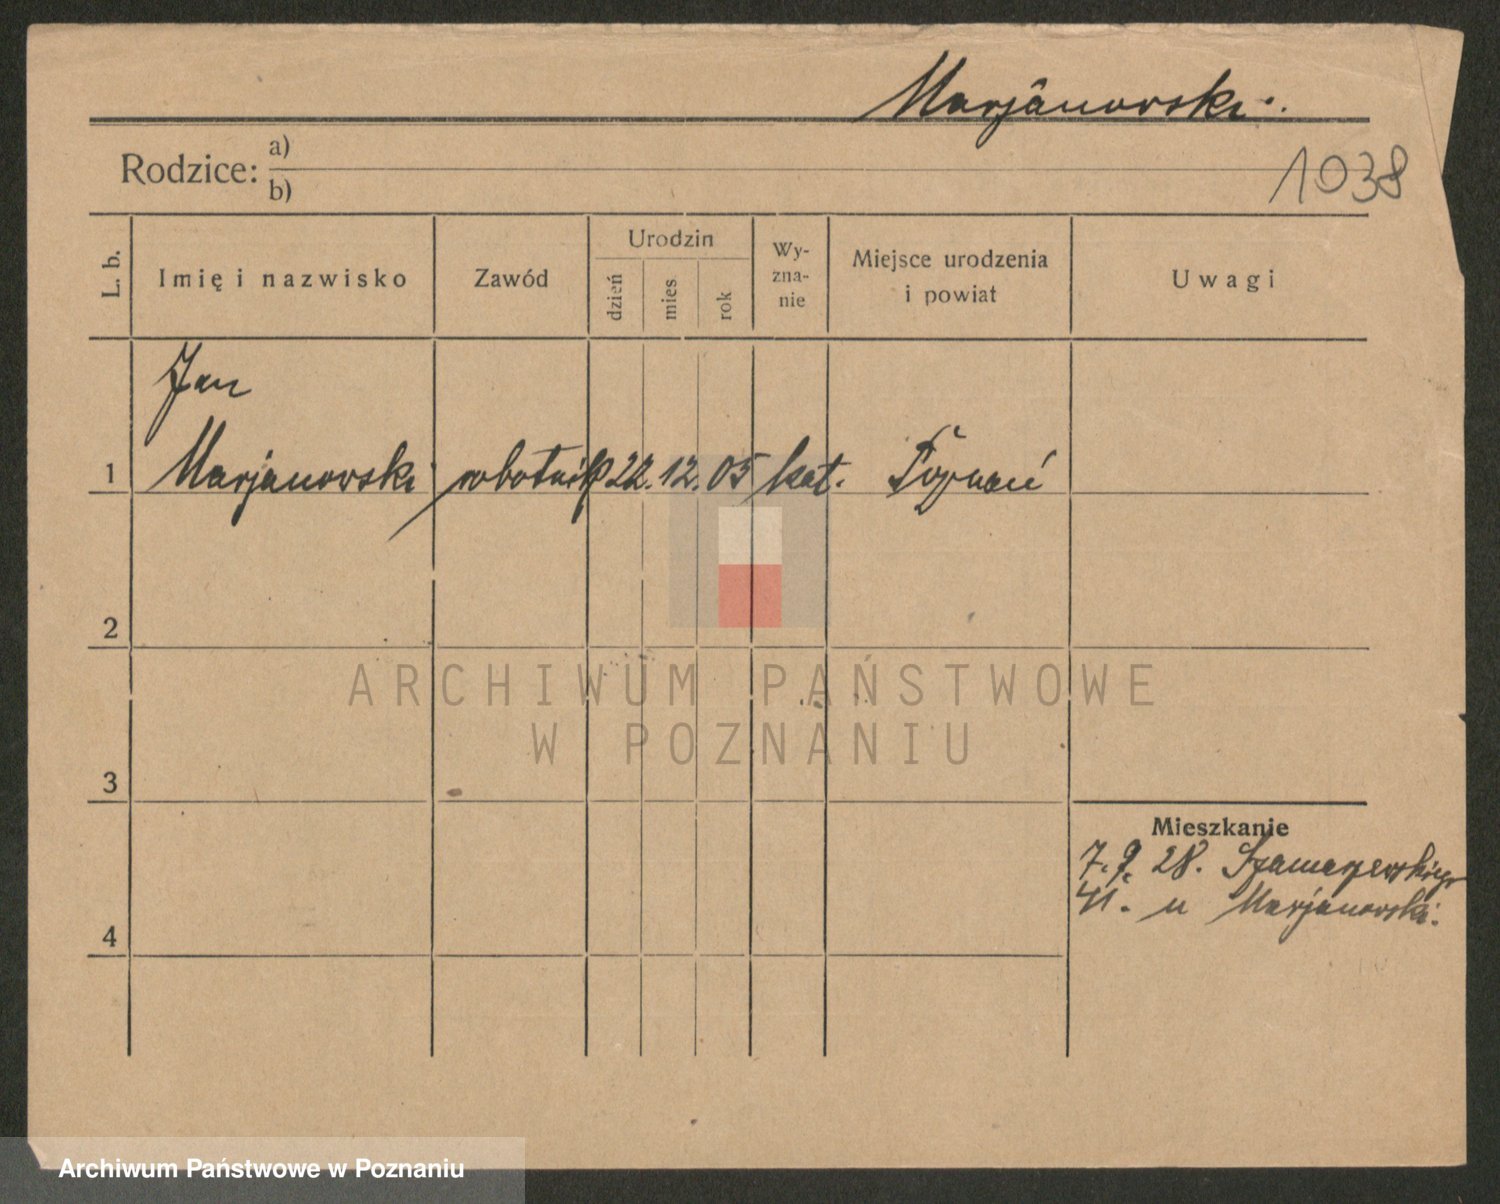 Marjanowski.
Rodzice: a)
b)
1038
L. b.
Imię i nazwisko
Zawód
Urodzin
dzień
mies
rok
Wy-
zna-
nie
Miejsce urodzenia
i powiat
Uwagi
Jan
1 Marjanowski robotnik 22. 12. 05 kat. Poznań
2
3
4
Mieszkanie
7. 9. 28. Szamarzewskiego
41. u Marjanowski.
ARCHIWUM PAŃSTWOWE
W POZNANIU
Archiwum Państwowe w Poznaniu